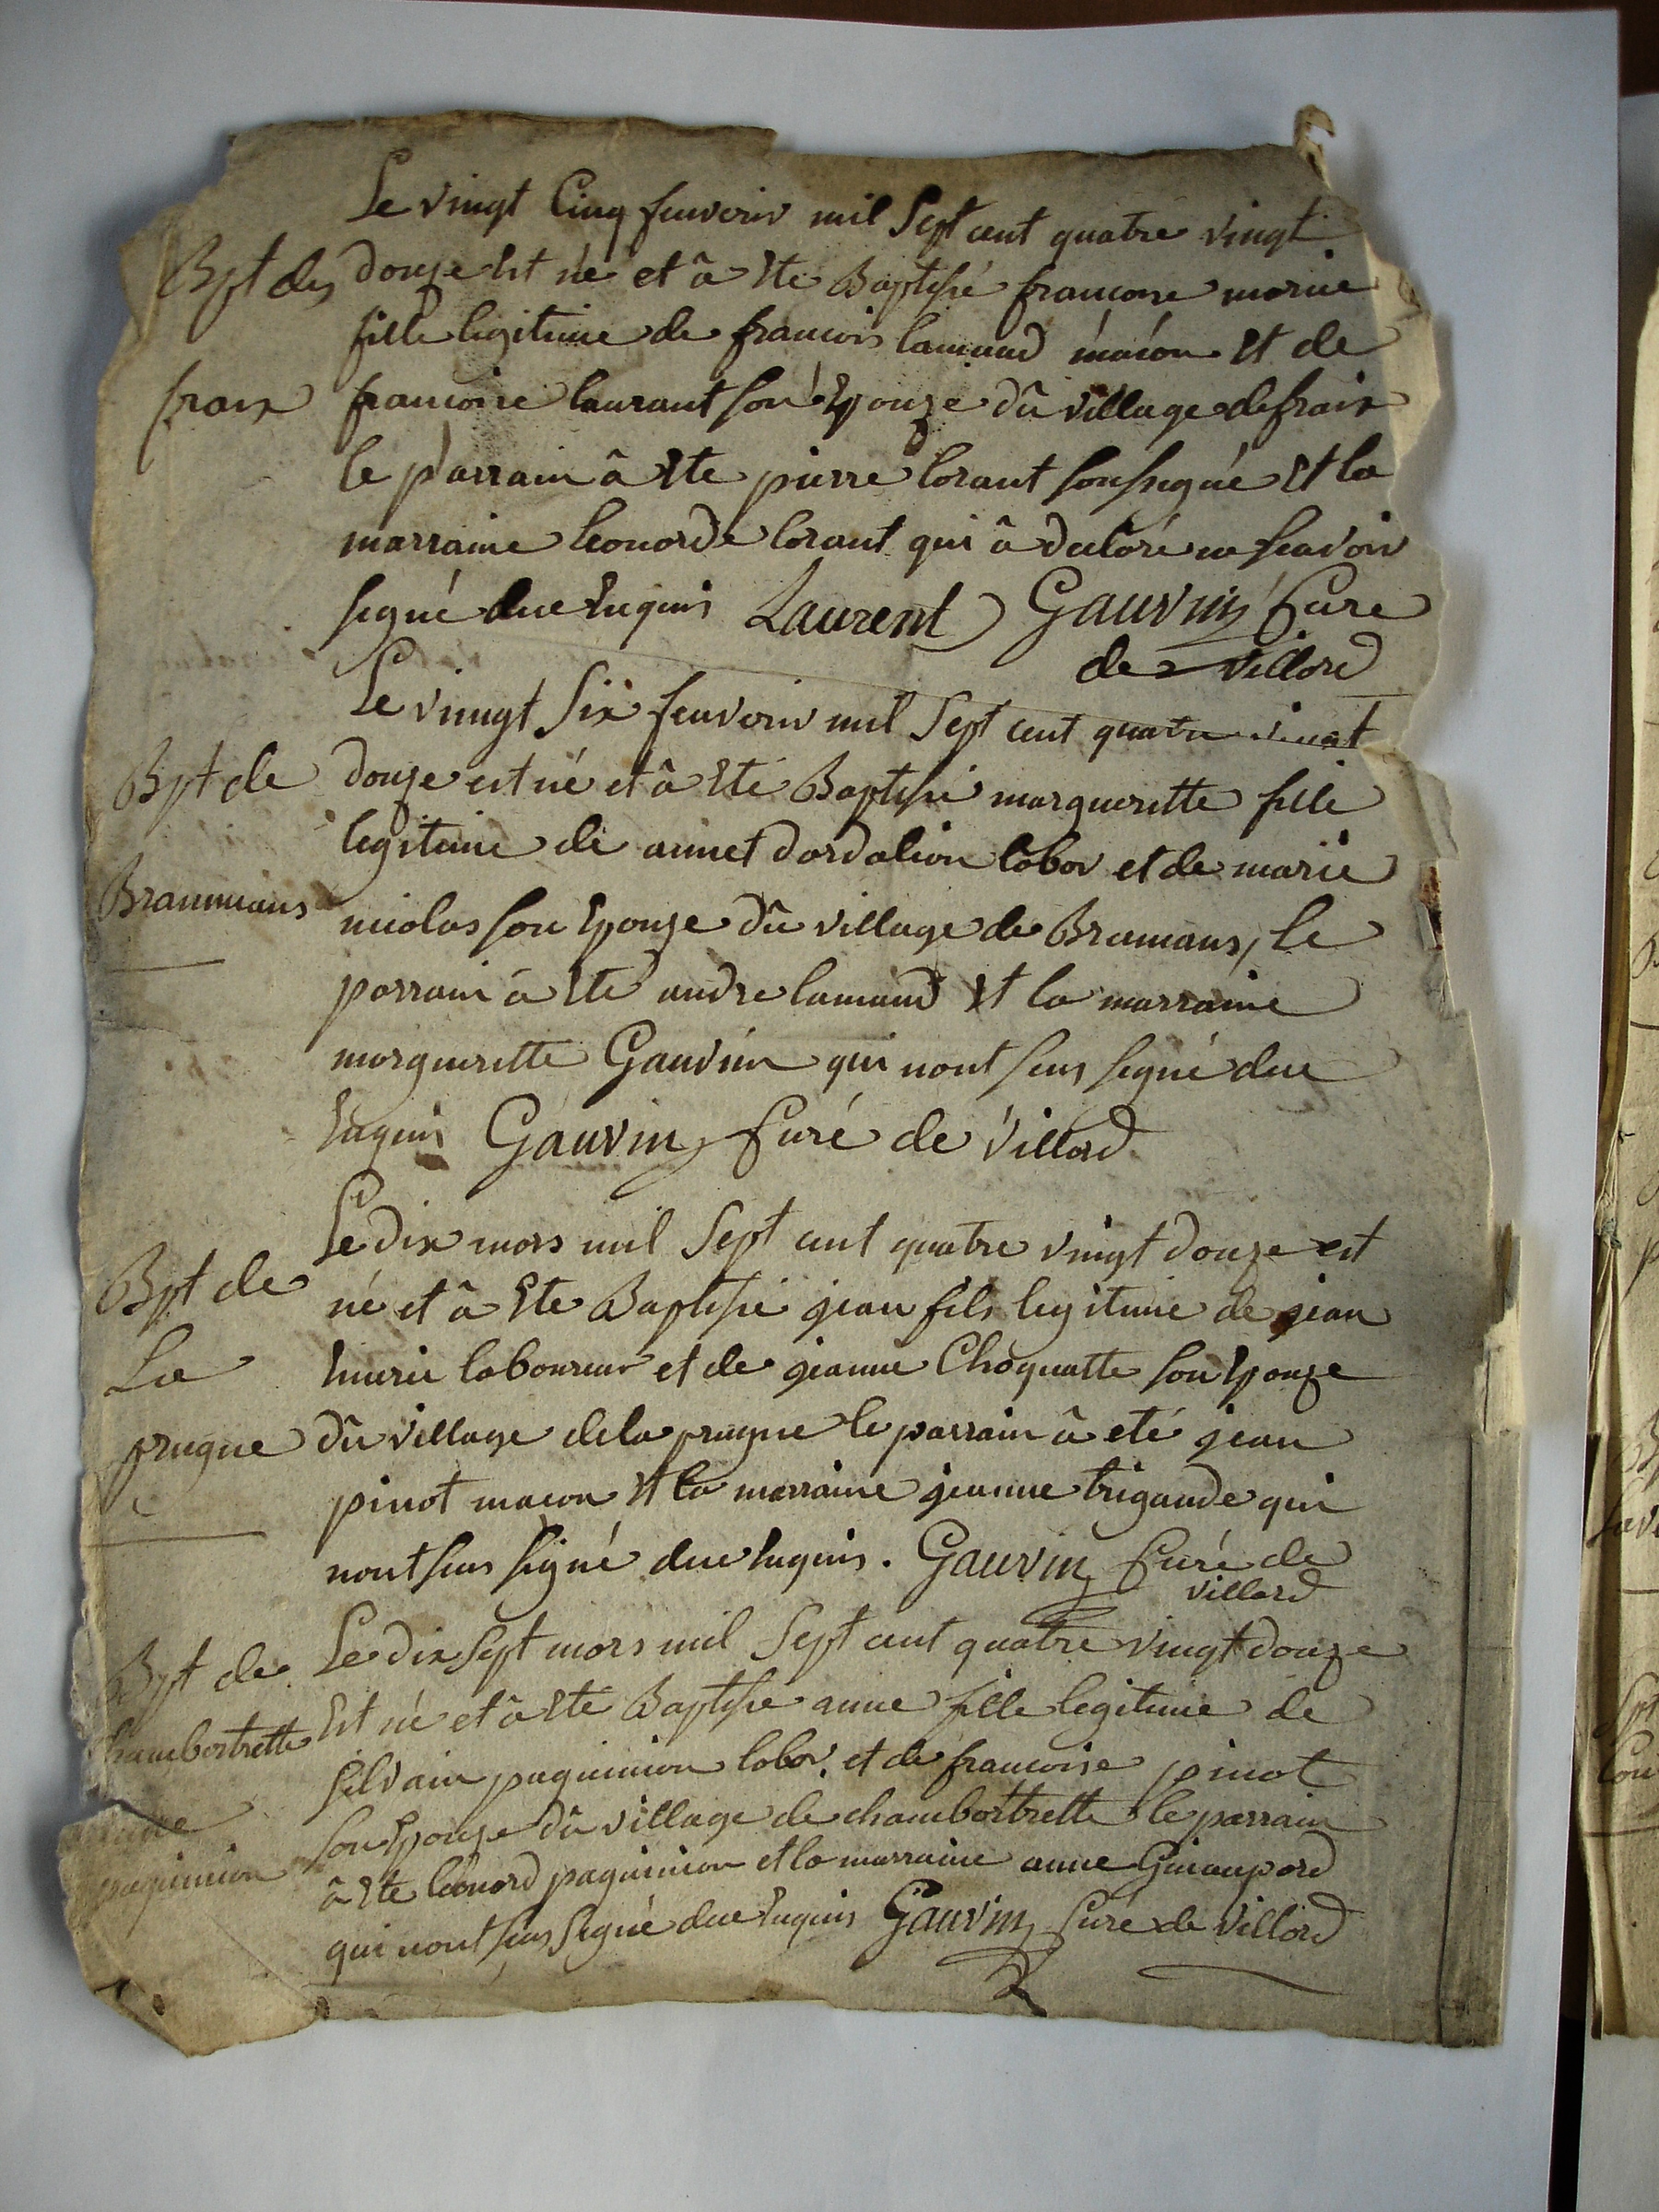 Le vingt Cinq feuverir mil Sept cent quatre vingt
Bpt des
douze Est né et â Ete Baptisé francoise marie
fille legitime de francois lamaud macon Et de
fraix
francoise laurant son Epouze dû village de fraix
le parrain â Ete pierre lorant soussigné Et la
marraine leonarde lorant qui â declaré ne scavoir
signé due Enquis Laurent Gauvin Curé
de villard
Le vingt Six feuverir mil Sept cent quatre vingt
Bpt de
douze est né et â Eté Baptisé margueritte fille
legitime de annet dardalion labor et de marie
Brammans
nicolas son Epouze dû village de Bramans, le
parrain â Eté andre lamaud Et la marraine
margueritte Gauvin qui nont seus signé due
Enquis Gauvin Curé de villard
Le dix mars mil Sept cent quatre vingt douze est
Bpt de
né et â Ete Baptisé jean fils legitime de jean
La
laboureur et de jeanne Choquatte son Epouze
prugne
dû village de la prugne le parrain â eté jean
pinot macon Et la marraine jeanne trigaude qui
nont seus signé due Enquis. Gauvin Curé de
villard
Le dix Sept mars mil Sept cent quatre vingt douze
Bpt de
Est né et â Eté Baptisé anne fille legitime de
chambortrette
silvain paquinion labor. et de francoise pinot
son Epouze dû village de chambortrette le parrain
paquinion
â Ete léonard paquinion et la marraine anne
qui nont seus Signé due Enquis Gauvin Curé de Villard